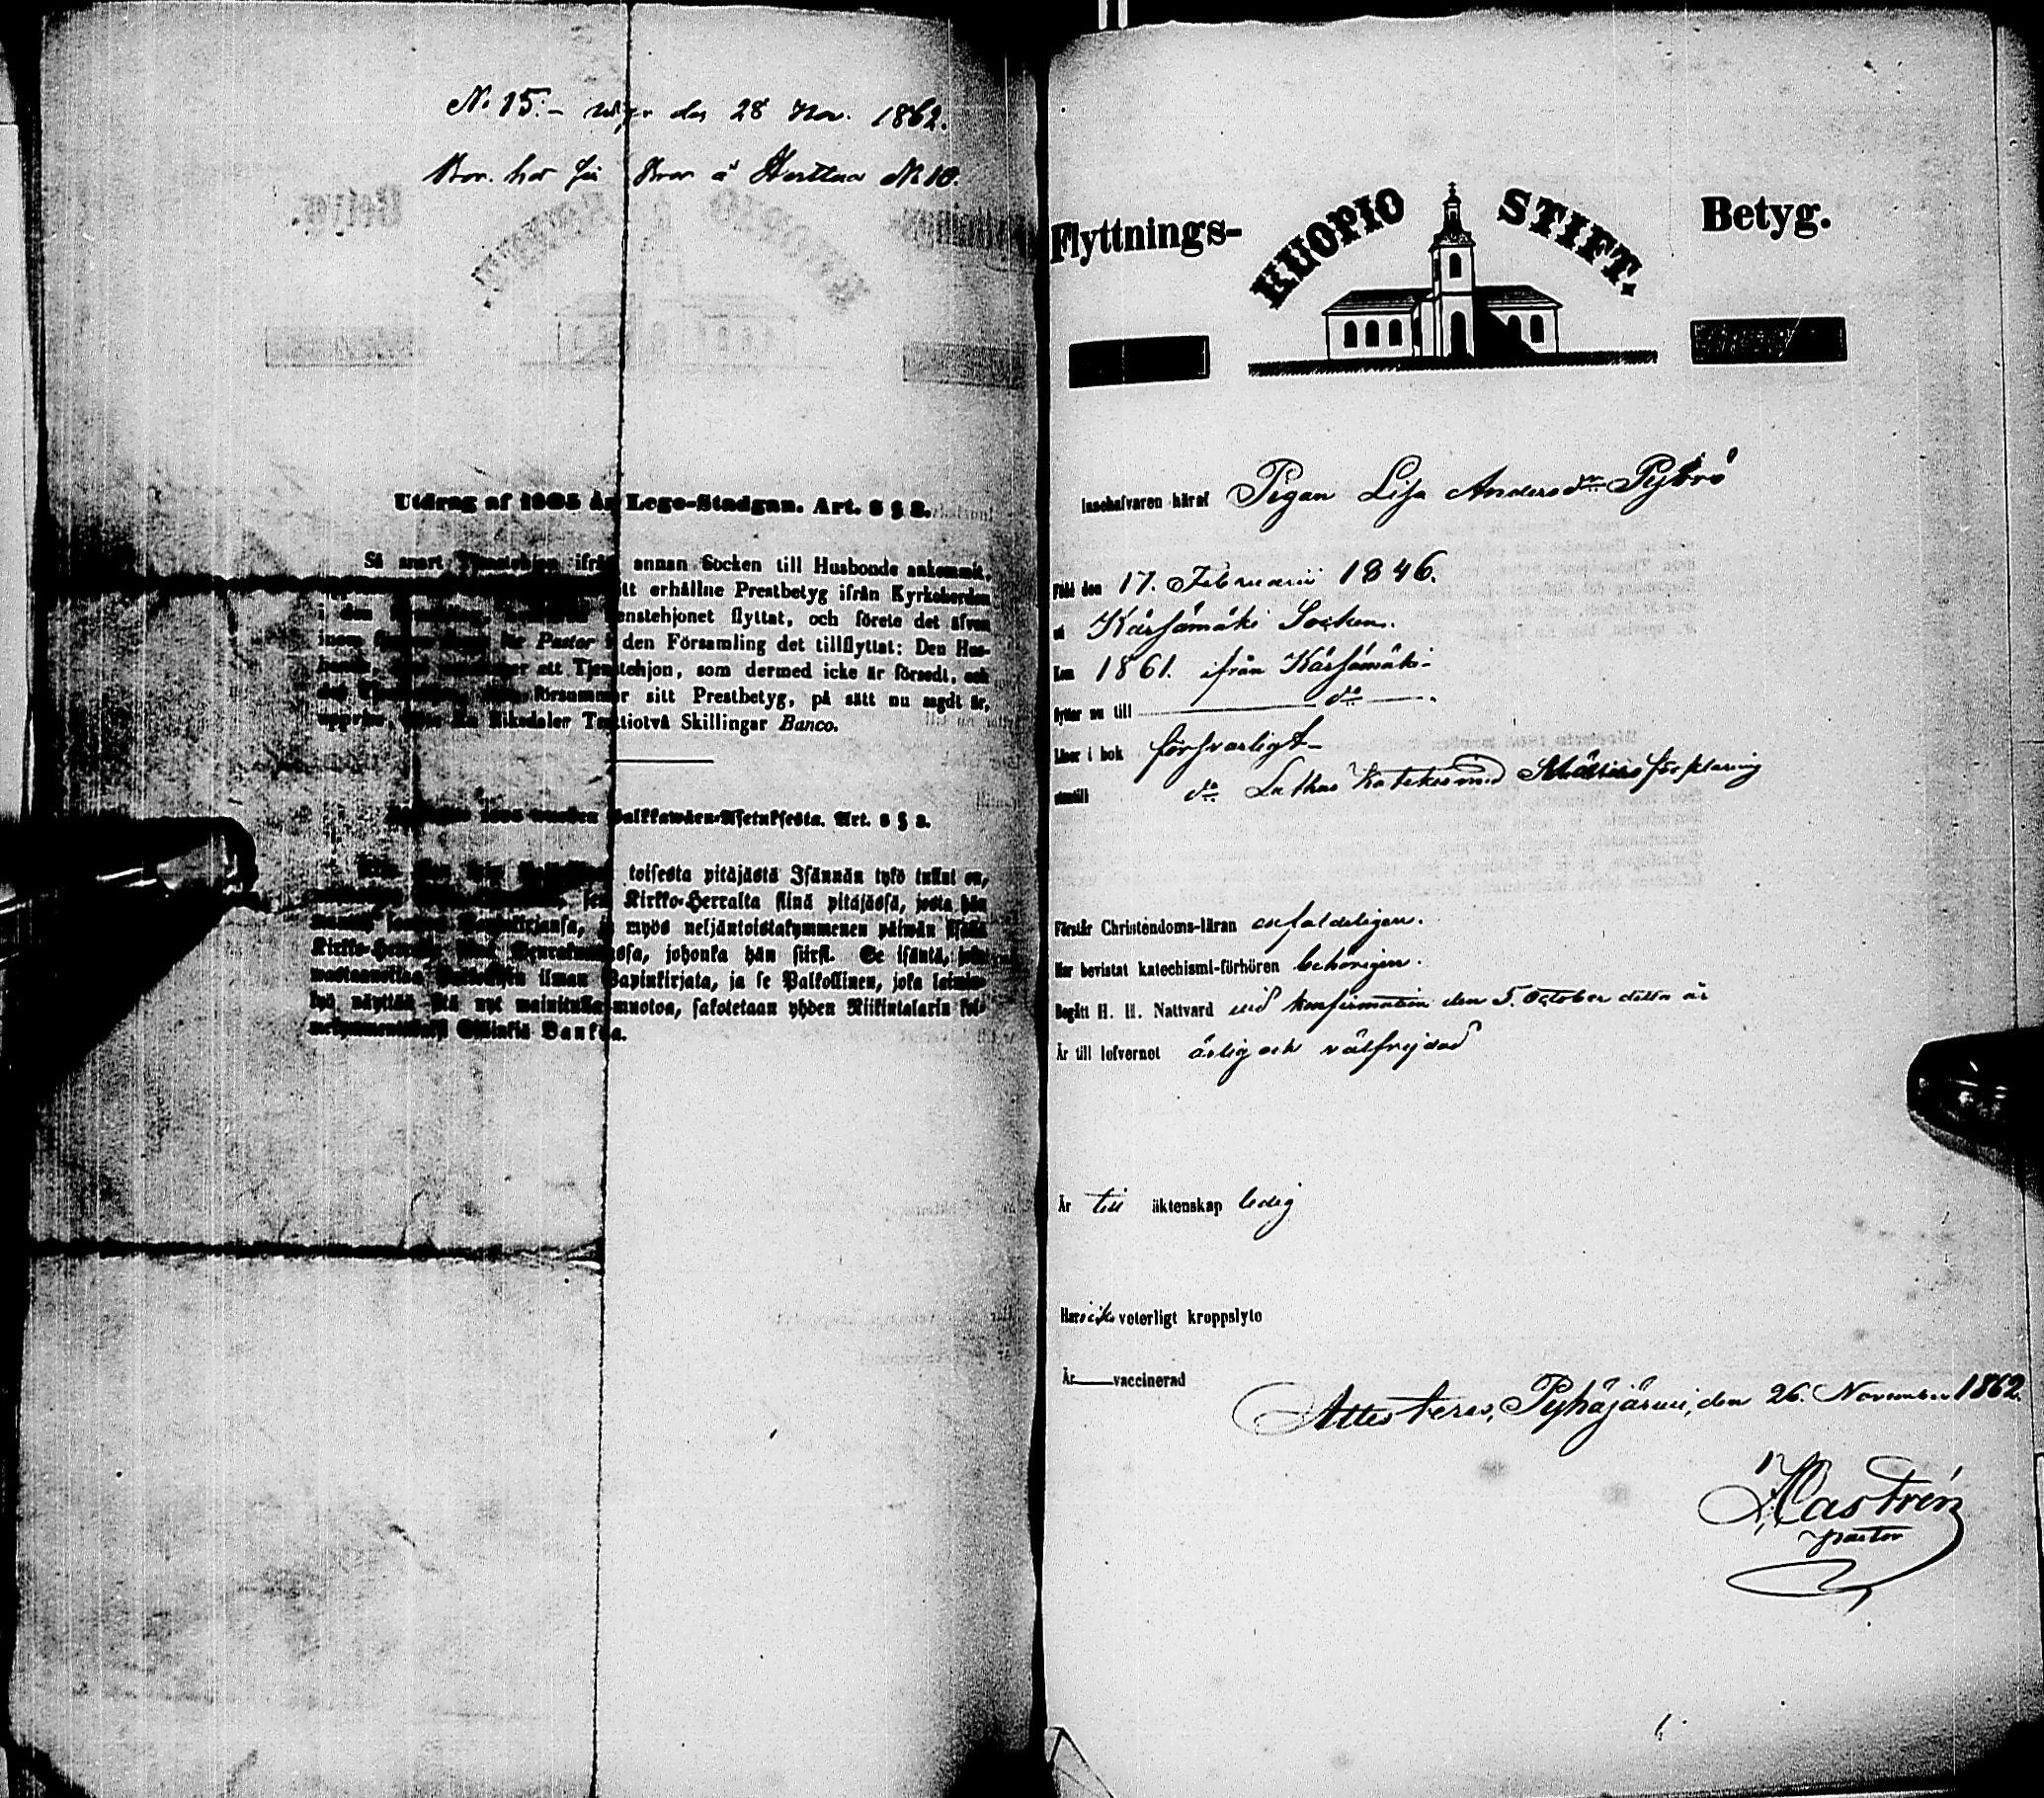 N. 15.- den 28 Nov. 1862.
Bor. hos å Herttua N. 10.
Utdrag af 1805 års Lego-Stadgan. Art. 5 § 8.
Så snart Tjenstehjon ifrån annan Socken till Husbonde ankommit,
sitt erhållne Prestbetyg ifrån Kyrkoherden
i den Tjenstehjonet flyttat, och förete det äfven
inom Pastor i den Församling det tillflyttat: Den Hus-
bonde, ett Tjenstehjon, som dermed icke är försedt, och
det försummar sitt Prestbetyg, på sätt nu sagdt är,
Riksdaler Trettiotvå Skillingar Banco.
1805 wuoden Palkkawäen-Asetuksesta. Art. 5 § 8.
toisesta pitäjästä Isännän tykö tullut on,
sen Kirkko-Herralta siinä pitäjässä, josta hän
ja myös neljäntoistakymmenen päiwän sisällä
Kirkko-Herralle Seurakunnassa, johonka hän siirsi. Se isäntä, joka
ilman Papinkirjata, ja se Palkollinen, joka laimin-
lyö näyttää sitä nyt mainitulla muotoa, sakotetaan yhden Riikintalarin kol-
Skillinkiä Bankoa.
Flyttnings- KUOPIO STIFT. Betyg.
Innehafvaren häraf Pigan Lisa Andersdr Pyörö
Född den 17. Februarii 1846.
uti Kärsämäki Socken.
Kom 1861. ifrån Kärsämäki
flyttar nu till do
Läser i bok försvarligt
utantill do Luthers Kateches med förklaring
Förstår Christendoms-läran enfaldeligen.
Har bevistat katechismi-förhören behörigen.
Begått H. H. Nattvard vid konfirmation den 5. October detta år
Är till lefvernet ärlig och välfrejdad
Är till äktenskap ledig
Har icke veterligt kroppslyte
Är vaccinerad
Attesteras, Pyhäjärvi, den 26. November 1862.
Castrén
pastor